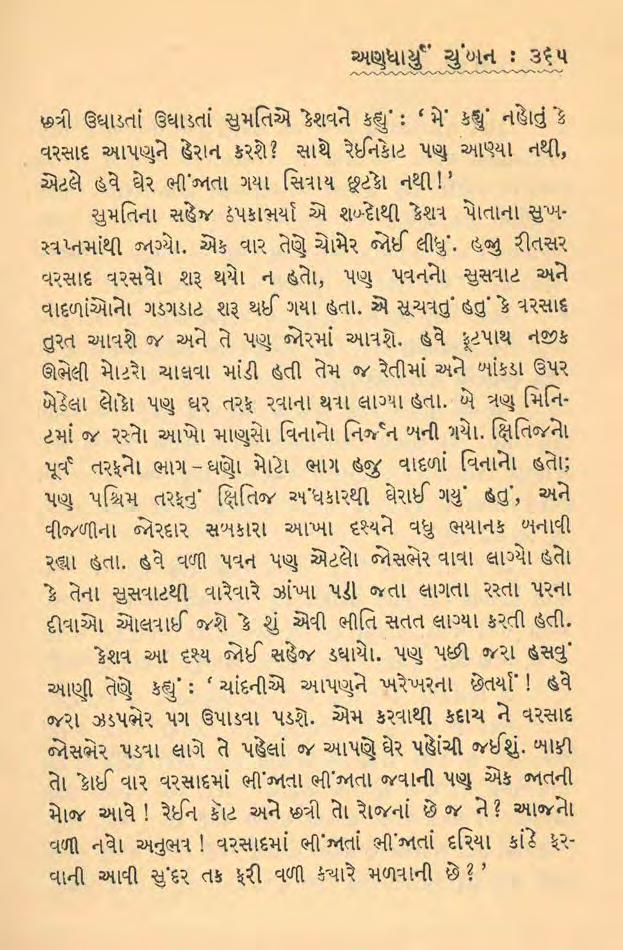 અણધાર્યું ચુંબન : ૩૬૫
છત્રી ઉઘાડતાં ઉઘાડતાં સુમતિએ કેશવને કહ્યું : ‘ મેં કહ્યું નહોતું કે
વરસાદ આપણને હેરાન કરશે? સાથે રેઈનકોટ પણ આણ્યા નથી,
એટલે હવે ઘેર ભીંજાતા ગયા સિવાય છૂટકો નથી!’
સુમતિના સહેજ ઠપકાભર્યા એ શબ્દોથી કેશવ પોતાના સુખ-
સ્વપ્નમાંથી જાગ્યો. એક વાર તેણે ચોમેર જોઈ લીધું. હજુ રીતસર
વરસાદ વરસવો શરૂ થયો ન હતો, પણ પવનનો સુસવાટ અને
વાદળાંઓનો ગડગડાટ શરૂ થઈ ગયા હતા. એ સૂચવતું હતું કે વરસાદ
તુરત આવશે જ અને તે પણ જોરમાં આવશે. હવે ફૂટપાથ નજીક
ઊભેલી મોટરો ચાલવા માંડી હતી તેમ જ રેતીમાં અને બાંકડા ઉપર
બેઠેલા લોકો પણ ઘર તરફ રવાના થવા લાગ્યા હતા. બે ત્રણ મિનિ-
ટમાં જ રસ્તો આખો માણસો વિનાનો નિર્જન બની ગયો. ક્ષિતિજનો
પૂર્વ તરફનો ભાગ – ઘણો મોટો ભાગ હજુ વાદળાં વિનાનો હતો;
પણ પશ્ચિમ તરફનું ક્ષિતિજ અંધકારથી ઘેરાઈ ગયું હતું, અને
વીજળીના જોરદાર સબકારા આખા દશ્યને વધુ ભયાનક બનાવી
રહ્યા હતા. હવે વળી પવન પણ એટલો જોસભેર વાવા લાગ્યો હતો
કે તેના સુસવાટથી વારેવારે ઝાંખા પડી જતા લાગતા રસ્તા પરના
દીવાઓ ઓલવાઈ જશે કે શું એવી ભીતિ સતત લાગ્યા કરતી હતી.
કેશવ આ દશ્ય જોઈ સહેજ ડઘાયો. પણ પછી જરા હસવું
આણી તેણે કહ્યું : ‘ ચાંદનીએ આપણને ખરેખરના છેતર્યાં ! હવે
જરા ઝડપભેર પગ ઉપાડવા પડશે. એમ કરવાથી કદાચ ને વરસાદ
જોસભેર પડવા લાગે તે પહેલાં જ આપણે ઘેર પહોંચી જઈશું. બાકી
તો કોઈ વાર વરસાદમાં ભીંજાતા ભીંજાતા જવાની પણ એક જાતની
મોજ આવે ! રેઈન કોટ અને છત્રી તો રોજનાં છે જ ને? આજનો
વળી નવો અનુભવ ! વરસાદમાં ભીંજાતાં ભીંજાતાં દરિયા કાંઠે ફર-
વાની આવી સુંદર તક ફરી વળી ક્યારે મળવાની છે?’